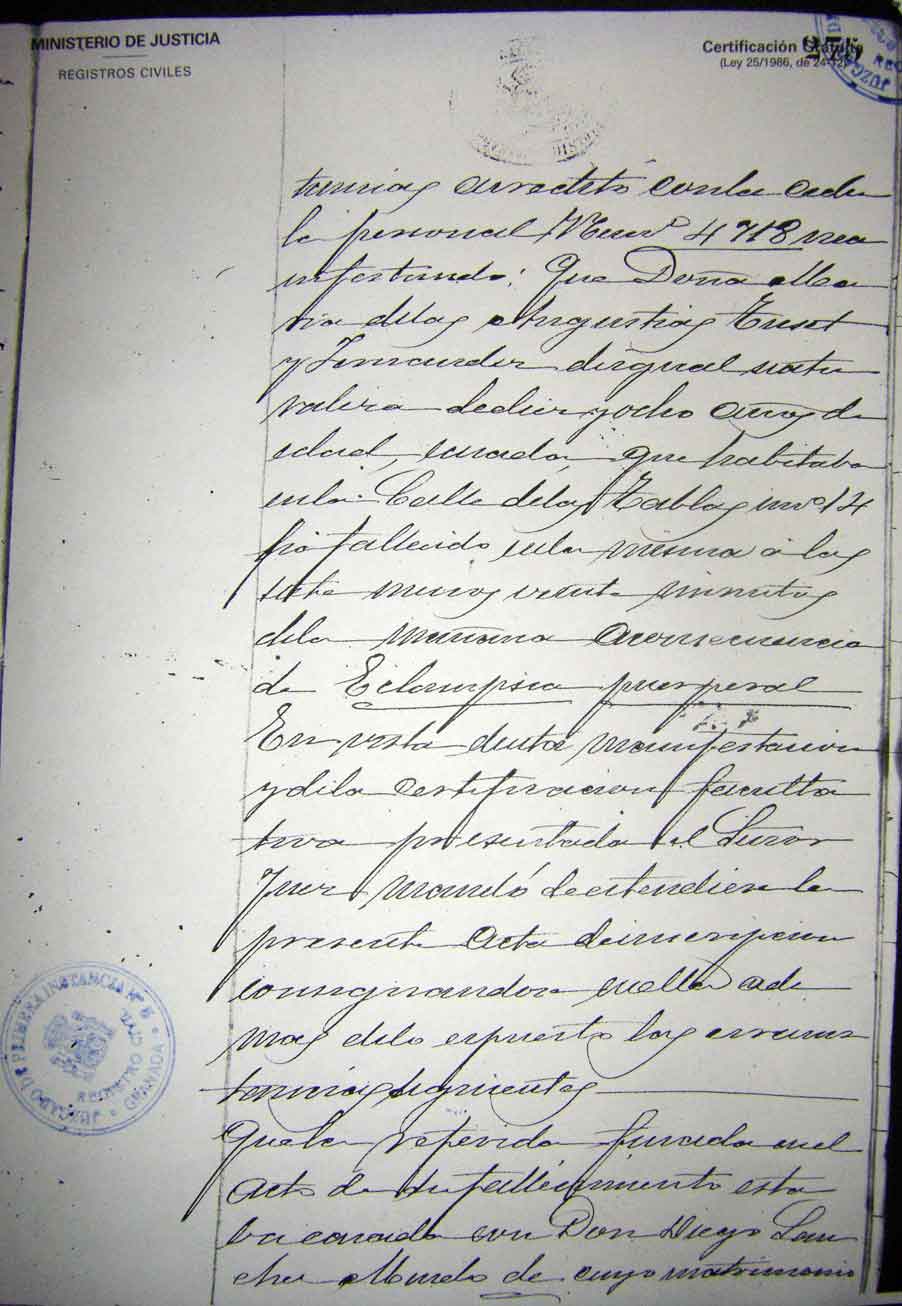 MINISTERIO DE JUSTICIA
REGISTROS CIVILES
Certificación Gratuita
(Ley 25/1986, de 24-12)
275
tancias acreditó con la cedu
la personal Num.º 4718 ma
nifestando: Que Doña Ma
ria de las Angustias Tuset
y Fernandez de igual natu
raleza de diez y ocho años de
edad, casada, que habitaba
en la Calle de las Tablas nº 14
ha fallecido en la misma á las
siete menos veinte minutos
de la mañana a consecuencia
de Eclampsia puerperal
En vista de esta manifestacion
y de la certificacion faculta
tiva presentada el Señor
Juez mandó se estendiese la
presente acta de inscripcion
consignandose en ella ade
mas de lo espuesto las circuns
tancias siguientes
Que la referida finada en el
acto de su fallecimiento esta
ba casada con Don Diego San
chez de cuyo matrimonio
JUZGADO DE PRIMERA INSTANCIA Nº 6
REGISTRO CIVIL
GRANADA